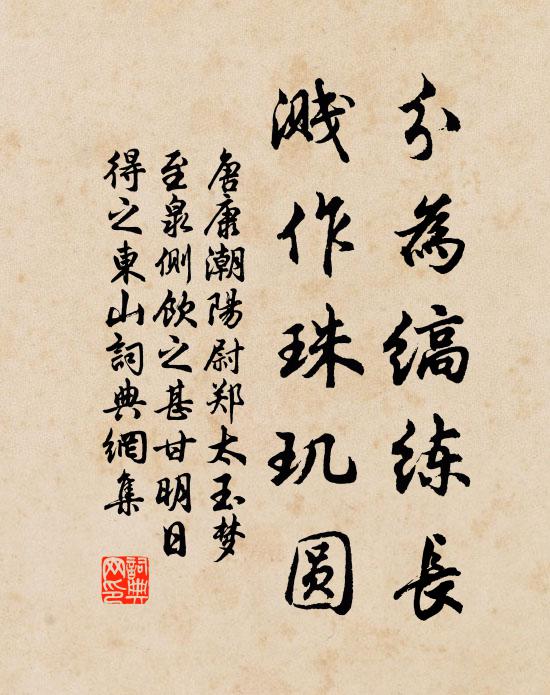 分為縞练長
溅作珠玑圆
唐康潮陽尉郑太玉梦
至泉側飲之甚甘明日
得之東山詞典網集
詞典
网印